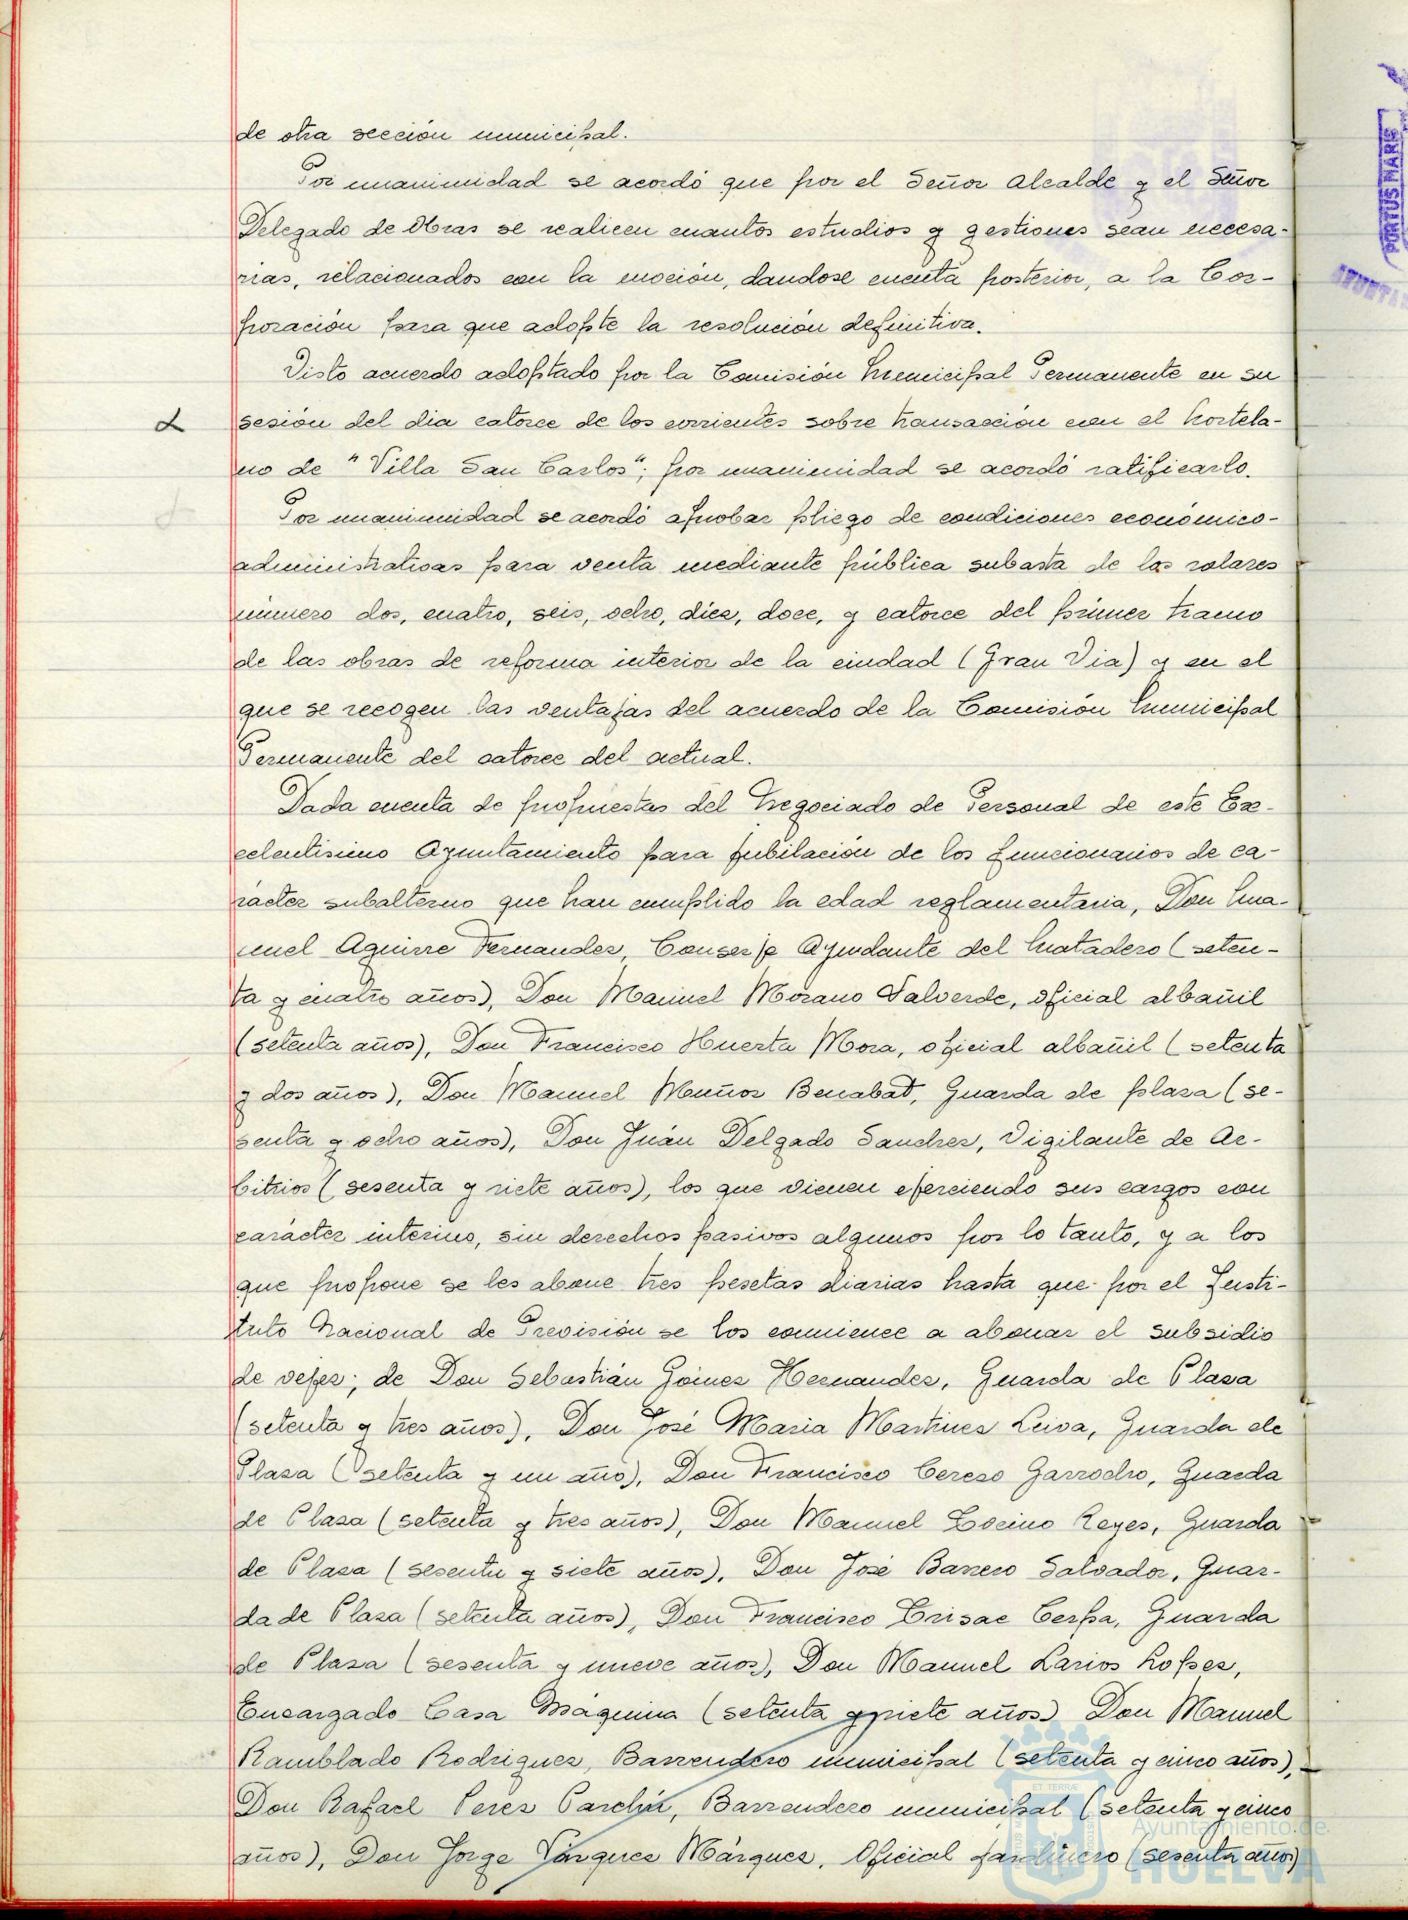 de otra sección municipal.
Por unanimidad se acordó que por el Señor Alcalde y el Señor
Delegado de Obras se realicen cuantos estudios y gestiones sean necesa-
rias, relacionados con la moción, dandose cuenta posterior, a la Cor-
poración para que adopte la resolución definitiva.
Visto acuerdo adoptado por la Comisión Municipal Permanente en su
sesión del dia catorce de los corrientes sobre transacción con el hortela-
no de "Villa San Carlos"; por unanimidad se acordó ratificarlo.
Por unanimidad se acordó aprobar pliego de condiciones económico-
administrativas para venta mediante pública subasta de los solares
número dos, cuatro, seis, ocho, diez, doce, y catorce del primer tramo
de las obras de reforma interior de la ciudad (Gran Via) y en el
que se recogen las ventajas del acuerdo de la Comisión Municipal
Permanente del catorce del actual.
Dada cuenta de propuestas del Negociado de Personal de este Ex-
celentisimo Ayuntamiento para jubilación de los funcionarios de ca-
rácter subalterno que han cumplido la edad reglamentaria, Don Ma-
nuel Aguirre Fernandez, Conserje Ayudante del Matadero (seten-
ta y cuatro años), Don Manuel Morano Valverde, oficial albañil
(setenta años), Don Francisco Huerta Mora, oficial albañil (setenta
y dos años), Don Manuel Muñoz Benabat, Guarda de plaza (se-
senta y ocho años), Don Juán Delgado Sanchez, Vigilante de Ar-
bitrios (sesenta y siete años), los que vienen ejerciendo sus cargos con
carácter interino, sin derechos pasivos algunos por lo tanto, y a los
que propone se les abone tres pesetas diarias hasta que por el Insti-
tuto Nacional de Previsión se los comience a abonar el subsidio
de vejez; de Don Sebastián Gómez Hernandez, Guarda de Plaza
(setenta y tres años), Don José Maria Martinez Leiva, Guarda de
Plaza (setenta y un año), Don Francisco Cerezo Garrocho, Guarda
de Plaza (setenta y tres años), Don Manuel Zocino Reyes, Guarda
de Plaza (sesenta y siete años), Don José Barrero Salvador, Guar-
da de Plaza (setenta años), Don Francisco Crisac Cerpa, Guarda
de Plaza (sesenta y nueve años), Don Manuel Larios Lopez,
Encargado Casa Máquina (setenta y siete años) Don Manuel
Ramblado Rodriguez, Barrendero municipal (setenta y cinco años),
Don Rafael Perez Parchin, Barrendero municipal (setenta y cinco
años), Don Jorge Vázquez Márquez, Oficial jardinero (sesenta años)
PORTUS MARIS
ET TERRÆ
Ayuntamiento de
HUELVA